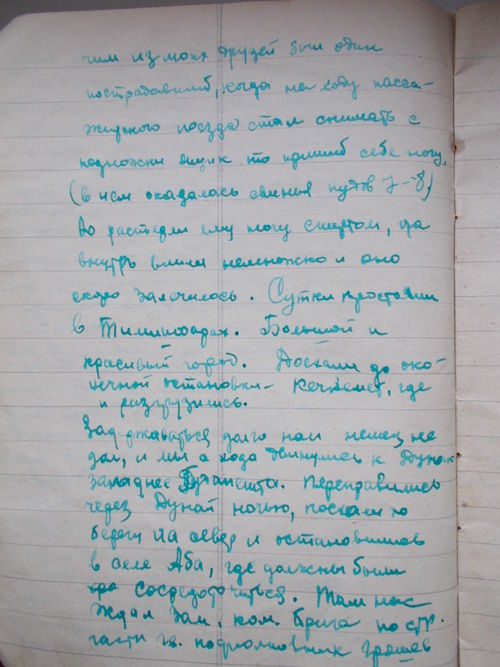 чим из моих друзей был один
пострадавший, когда на ходу пасса-
жирского поезда стал снимать с
подножки ящик то пришиб себе ногу,
(в нем оказалась свинья пудов 7-8)
Но растерли ему ногу спиртом, да
внутрь влили немножко и оно
скоро залечилось. Сутки простояли
в Тимишоарах. Большой и
красивый город. Доехали до око-
нечной остановки - Кечкемет, где
и разгрузились.
Задерживаться долго нам немец не
дал, и мы с хода двинулись к Дунаю
западнее Будапешта. Переправились
через Дунай ночью, поехали по
берегу на север и остановились
в селе Аба, где должны были
сосредоточиться. Там нас
ждал зам. ком. бриг. по стр.
части гв. подполковник